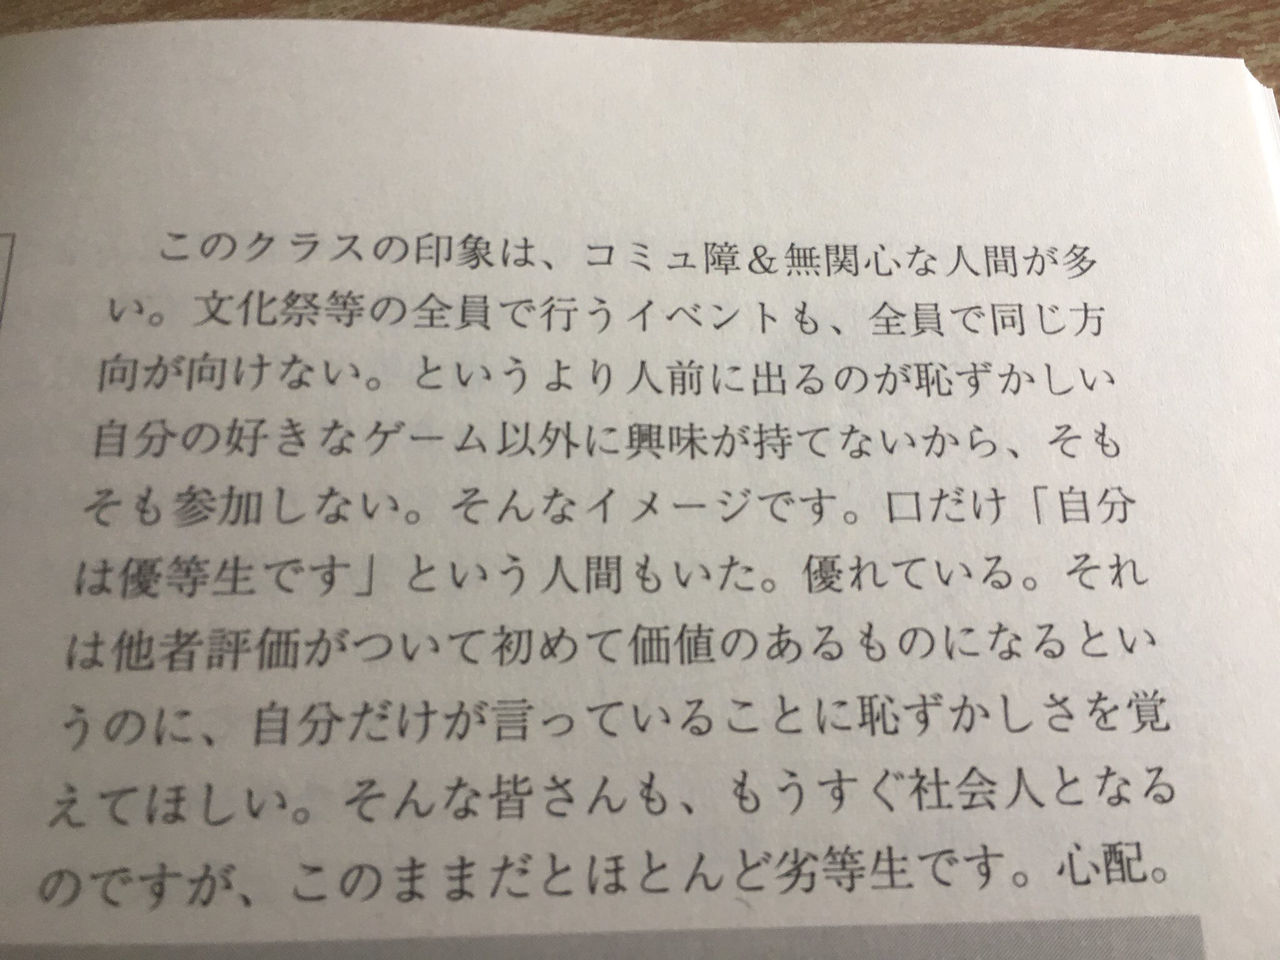 このクラスの印象は、コミュ障＆無関心な人間が多
い。文化祭等の全員で行うイベントも、全員で同じ方
向が向けない。というより人前に出るのが恥ずかしい
自分の好きなゲーム以外に興味が持てないから、そも
そも参加しない。そんなイメージです。口だけ「自分
は優等生です」という人間もいた。優れている。それ
は他者評価がついて初めて価値のあるものになるとい
うのに、自分だけが言っていることに恥ずかしさを覚
えてほしい。そんな皆さんも、もうすぐ社会人となる
のですが、このままだとほとんど劣等生です。心配。